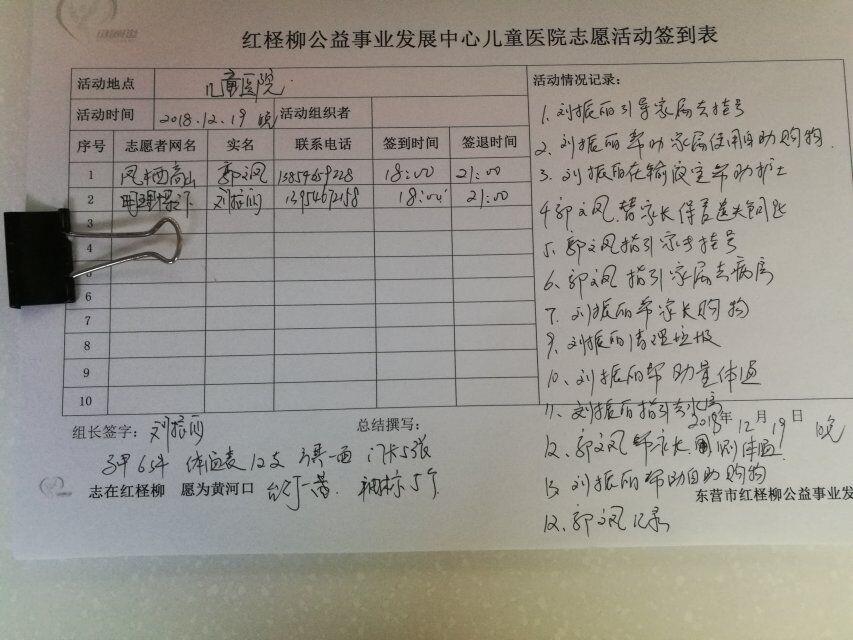 红柽柳公益事业发展中心儿童医院志愿活动签到表
活动地点 儿童医院
活动时间 2018.12.19 晚 活动组织者
序号 志愿者网名 实名 联系电话 签到时间 签退时间
1 凤栖高山 郭文凤 13854659228 18:00 21:00
2 刘振丽 13954672158 18:00 21:00
3
4
5
6
7
8
9
10
活动情况记录:
1. 刘振丽引导家属去挂号
2、刘振丽帮助家属使用自助购物.
3、刘振丽在输液室帮助护士
4、郭文凤替家长保管遗失钥匙
5、郭文凤指引家长挂号
6、郭文凤指引家属去病房
7、刘振丽帮家长购物
9、刘振丽清理垃圾
10、刘振丽帮助量体温
11、刘振丽指引去水房
12、郭文凤帮家长测体温
13、刘振丽帮助自助购物
12、郭文凤记录
组长签字: 刘振丽 总结撰写:
2018年12月19日 晚
体温表12支 一面 5张
志在红柽柳 愿为黄河口 袖标5个
东营市红柽柳公益事业发